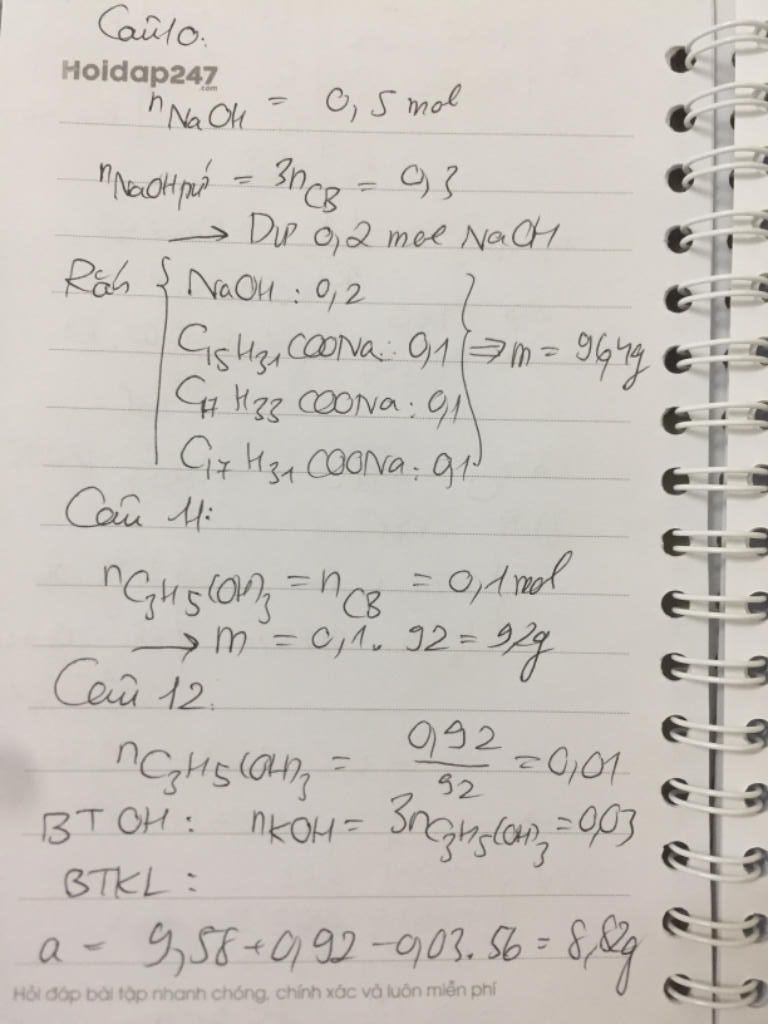 Câu 10.
Hoidap247
.com
nNaOH = 0,5 mol
nNaOHpứ = 3nCB = 0,3
→ Dư 0,2 mol NaOH
Rắn { NaOH : 0,2
C15H31COONa : 0,1 } ⇒ m = 96,4g
C17H33COONa : 0,1
C17H31COONa : 0,1
Câu 11:
nC3H5(OH)3 = nCB = 0,1 mol
→ m = 0,1 . 92 = 9,2g
Câu 12.
nC3H5(OH)3 = 0,92/92 = 0,01
BT OH : nKOH = 3nC3H5(OH)3 = 0,03
BTKL :
a = 9,58 + 0,92 - 0,03.56 = 8,82g
Hỏi đáp bài tập nhanh chóng, chính xác và luôn miễn phí